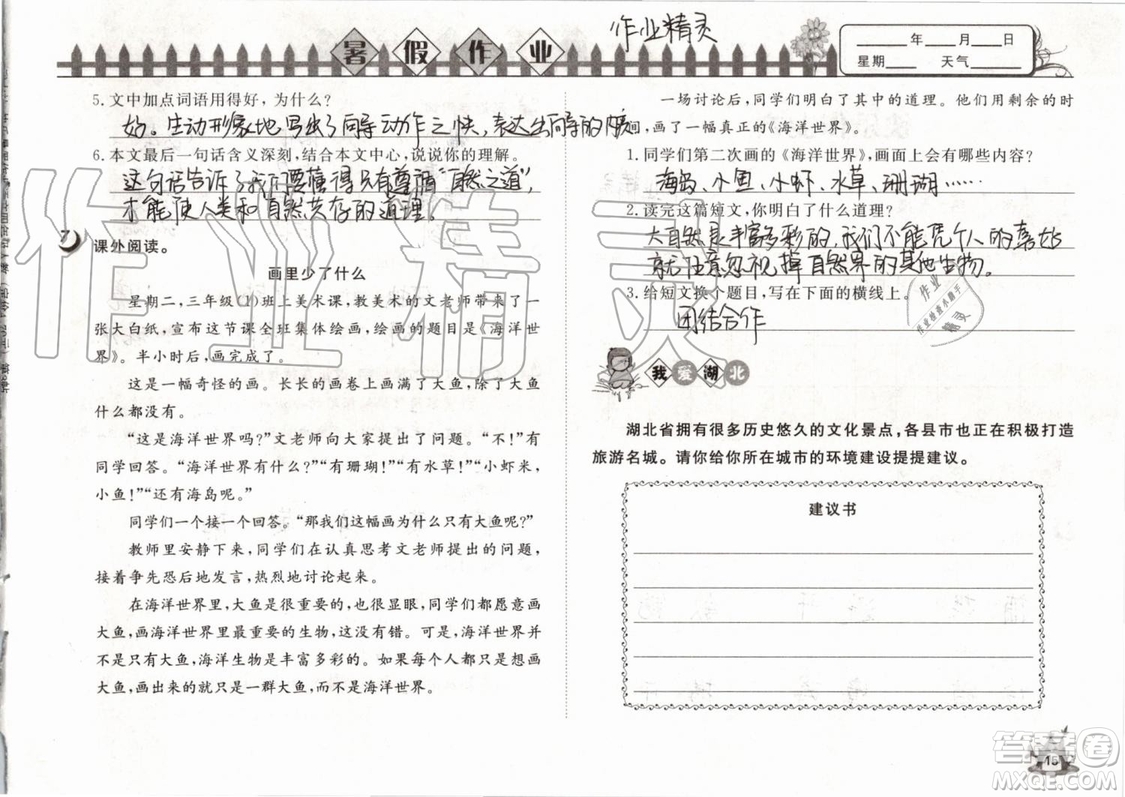 暑假作业
作业精灵
____年____月____日
星期____ 天气____
5. 文中加点词语用得好，为什么?
妙。生动形象地写出了向导动作之快，表达出向导的
6. 本文最后一句话含义深刻，结合本文中心，说说你的理解。
这句话告诉了我们要懂得只有尊重“自然之道”，
才能使人类和自然共存的道理。
7
课外阅读。
画里少了什么
星期二，三年级(1)班上美术课，教美术的文老师带来了一
张大白纸，宣布这节课全班集体绘画，绘画的题目是《海洋世
界》。半小时后，画完成了。
这是一幅奇怪的画。长长的画卷上画满了大鱼，除了大鱼，
什么都没有。
“这是海洋世界吗?”文老师向大家提出了问题。“不!”有
同学回答。“海洋世界有什么?”“有珊瑚!”“有水草!”“小虾米，
小鱼!”“还有海岛呢。”
同学们一个接一个回答。“那我们这幅画为什么只有大鱼呢?”
教师里安静下来，同学们在认真思考文老师提出的问题，
接着争先恐后地发言，热烈地讨论起来。
在海洋世界里，大鱼是很重要的，也很显眼，同学们都愿意画
大鱼，画海洋世界里最重要的生物，这没有错。可是，海洋世界并
不是只有大鱼，海洋生物是丰富多彩的。如果每个人都只画
大鱼，画出来的就只是一群大鱼，而不是海洋世界。
一场讨论后，同学们明白了其中的道理。他们用剩余的时
间，画了一幅真正的《海洋世界》。
1. 同学们第二次画的《海洋世界》，画面上会有哪些内容?
海岛、小鱼、小虾、水草、珊瑚……
2. 读完这篇短文，你明白了什么道理?
大自然是丰富多彩的，我们不能凭个人的喜好
就任意忽视掉自然界的其他生物。
3. 给短文换个题目，写在下面的横线上。
团结合作
我爱湖北
湖北省拥有很多历史悠久的文化景点，各县市也正在积极打造
旅游名城。请你给你所在城市的环境建设提提建议。
建议书
15
作业精灵
作业
作业检查小助手
精灵
答案圈
MXQE.COM